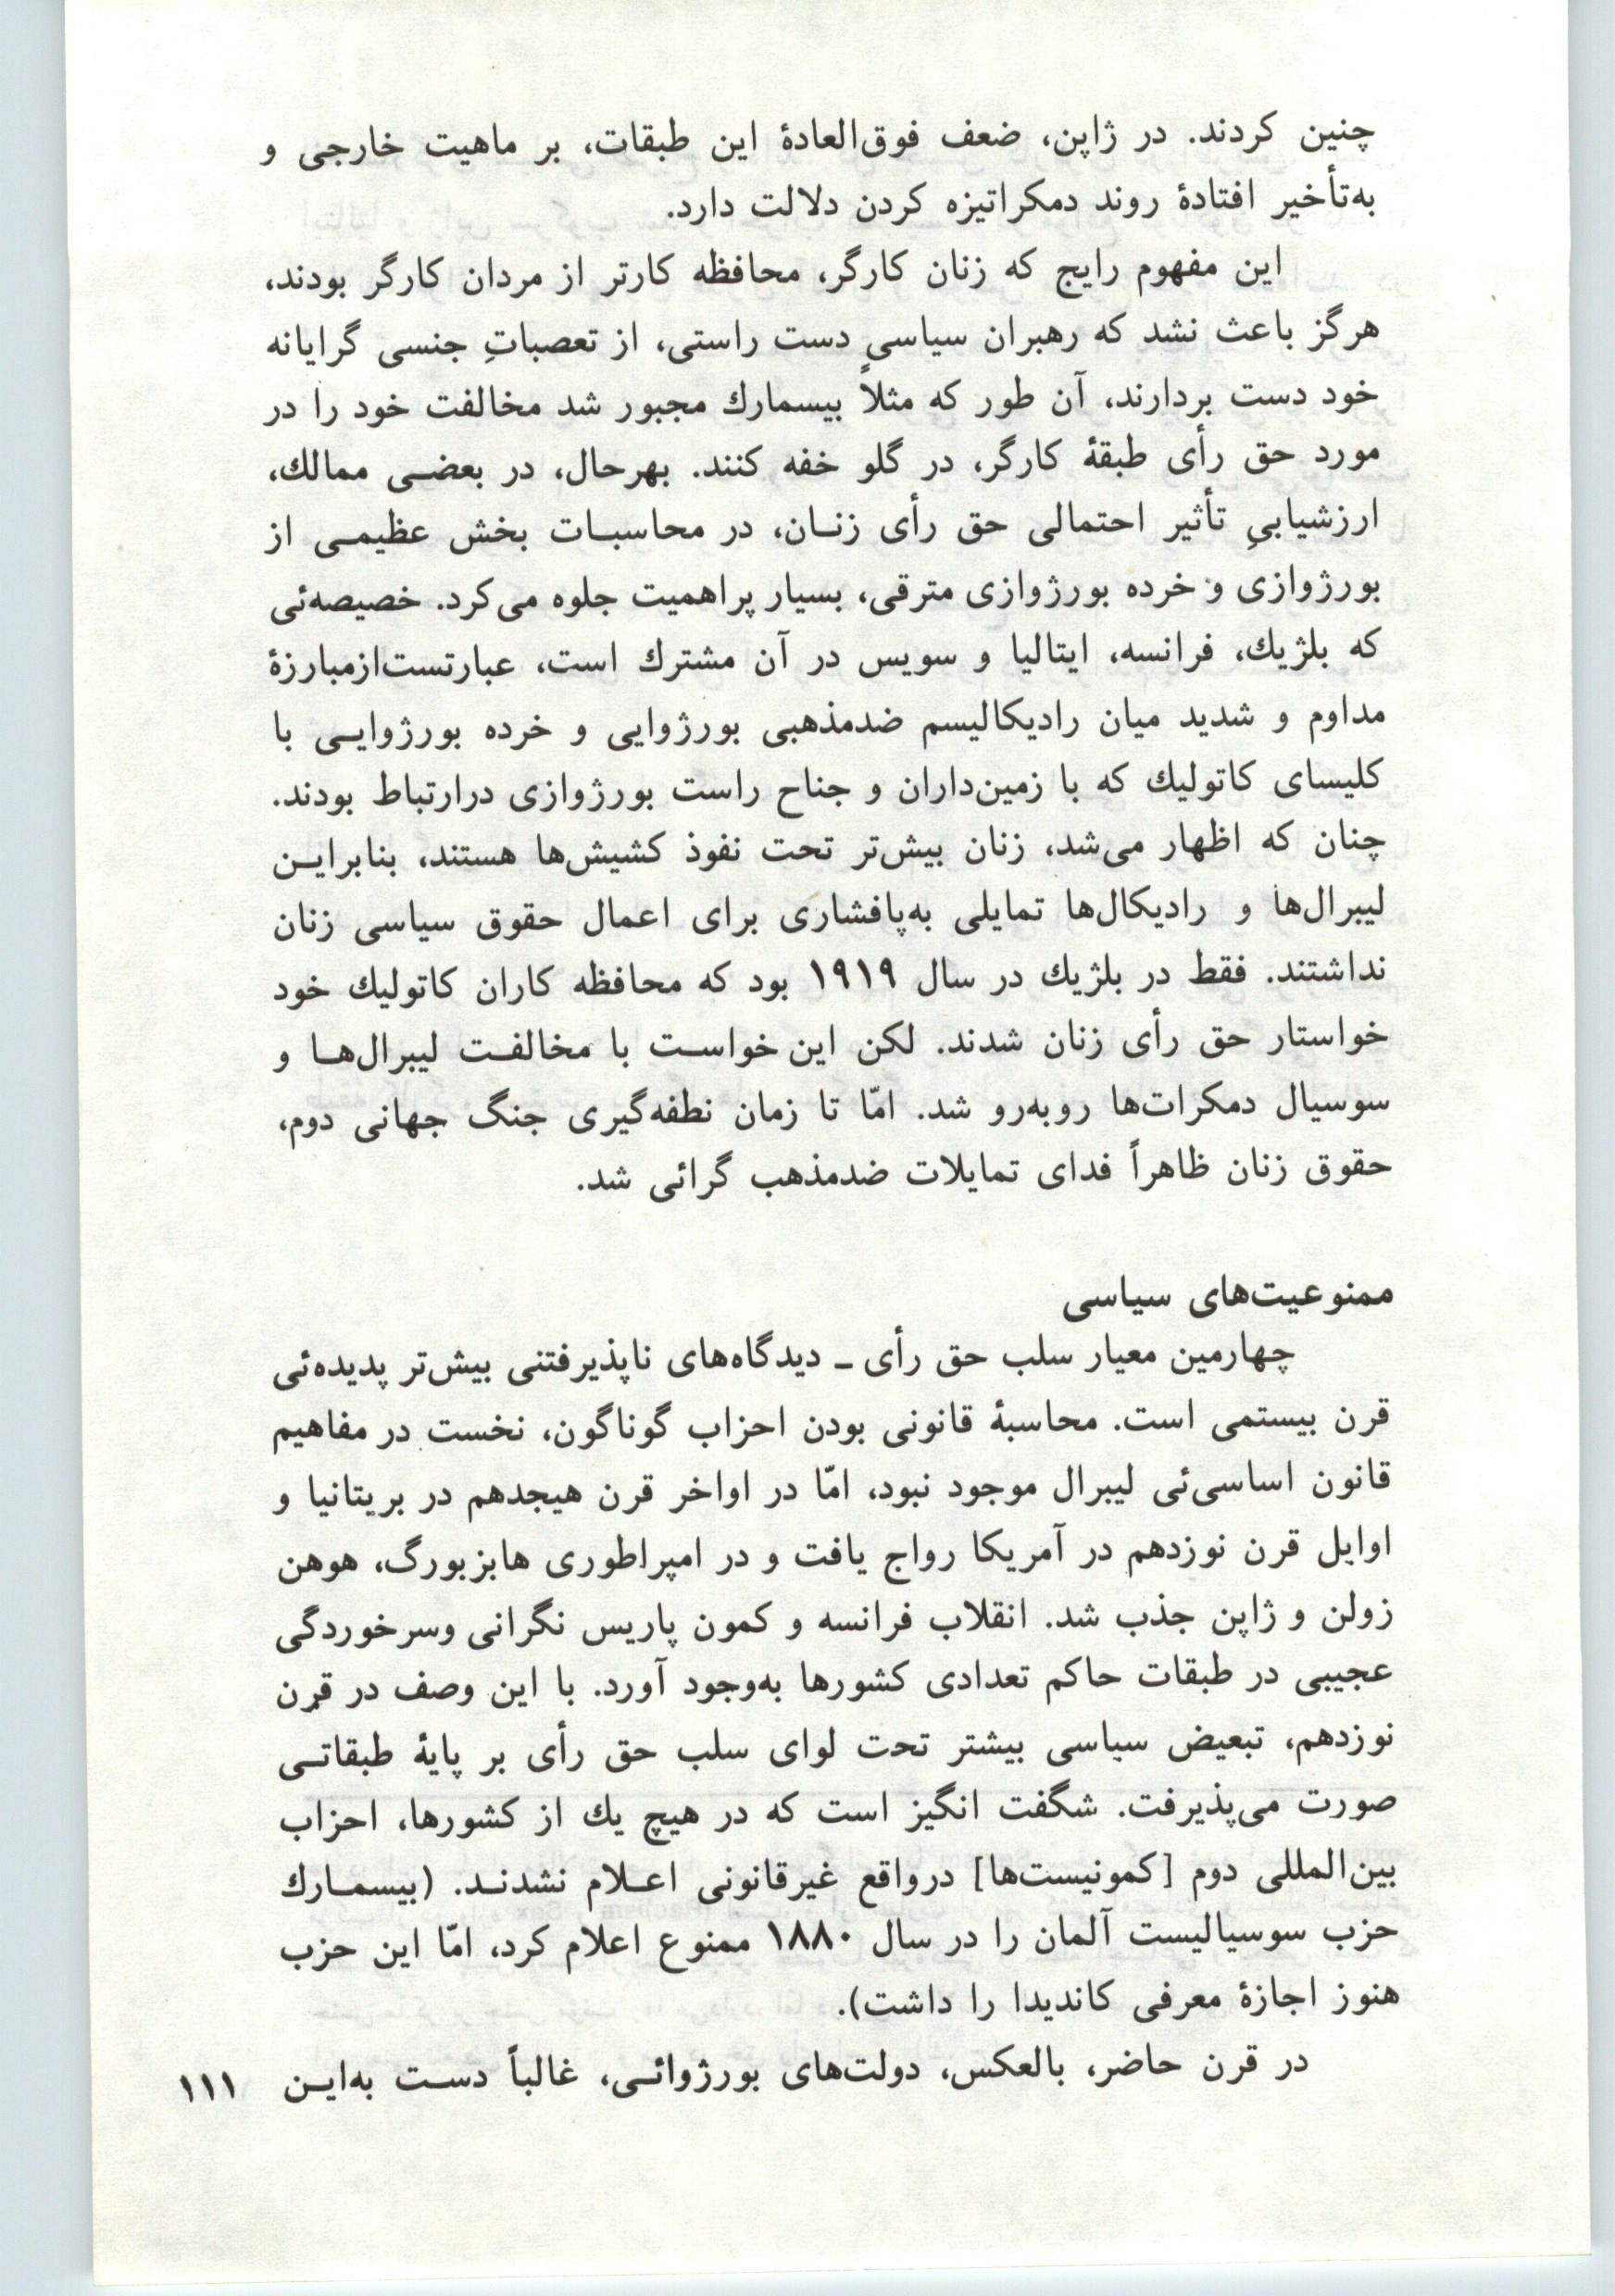 چنین کردند. در ژاپن، ضعف فوق‌العادهٔ این طبقات، بر ماهیت خارجی و
به‌تأخیر افتادهٔ روند دمکراتیزه کردن دلالت دارد.
این مفهوم رایج که زنان کارگر، محافظه کارتر از مردان کارگر بودند،
هرگز باعث نشد که رهبران سیاسی دست راستی، از تعصباتِ جنسی گرایانه
خود دست بردارند، آن طور که مثلاً بیسمارك مجبور شد مخالفت خود را در
مورد حق رأی طبقهٔ کارگر، در گلو خفه کنند. بهرحال، در بعضی ممالك،
ارزشیابیِ تأثیر احتمالی حق رأی زنان، در محاسبات بخش عظیمی از
بورژوازی و خرده بورژوازی مترقی، بسیار پراهمیت جلوه می‌کرد. خصیصه‌ئی
که بلژیك، فرانسه، ایتالیا و سویس در آن مشترك است، عبارتست‌ازمبارزهٔ
مداوم و شدید میان رادیکالیسم ضدمذهبی بورژوایی و خرده بورژوایی با
کلیسای کاتولیك که با زمین‌داران و جناح راست بورژوازی درارتباط بودند.
چنان که اظهار می‌شد، زنان بیش‌تر تحت نفوذ کشیش‌ها هستند، بنابراین
لیبرال‌ها و رادیکال‌ها تمایلی به‌پافشاری برای اعمال حقوق سیاسی زنان
نداشتند. فقط در بلژیك در سال ۱۹۱۹ بود که محافظه کاران کاتولیك خود
خواستار حق رأی زنان شدند. لکن این خواست با مخالفت لیبرال‌ها و
سوسیال دمکرات‌ها روبه‌رو شد. امّا تا زمان نطفه‌گیری جنگ جهانی دوم،
حقوق زنان ظاهراً فدای تمایلات ضدمذهب گرائی شد.
ممنوعیت‌های سیاسی
چهارمین معیار سلب حق رأی ـ دیدگاه‌های ناپذیرفتنی بیش‌تر پدیده‌ئی
قرن بیستمی است. محاسبهٔ قانونی بودن احزاب گوناگون، نخست در مفاهیم
قانون اساسی‌ئی لیبرال موجود نبود، امّا در اواخر قرن هیجدهم در بریتانیا و
اوایل قرن نوزدهم در آمریکا رواج یافت و در امپراطوری هابزبورگ، هوهن
زولن و ژاپن جذب شد. انقلاب فرانسه و کمون پاریس نگرانی وسرخوردگی
عجیبی در طبقات حاکم تعدادی کشورها به‌وجود آورد. با این وصف در قرن
نوزدهم، تبعیض سیاسی بیشتر تحت لوای سلب حق رأی بر پایهٔ طبقاتی
صورت می‌پذیرفت. شگفت انگیز است که در هیچ یك از کشورها، احزاب
بین‌المللی دوم [کمونیست‌ها] درواقع غیرقانونی اعلام نشدند. (بیسمارك
حزب سوسیالیست آلمان را در سال ۱۸۸۰ ممنوع اعلام کرد، امّا این حزب
هنوز اجازهٔ معرفی کاندیدا را داشت).
در قرن حاضر، بالعکس، دولت‌های بورژوائی، غالباً دست به‌این
۱۱۱